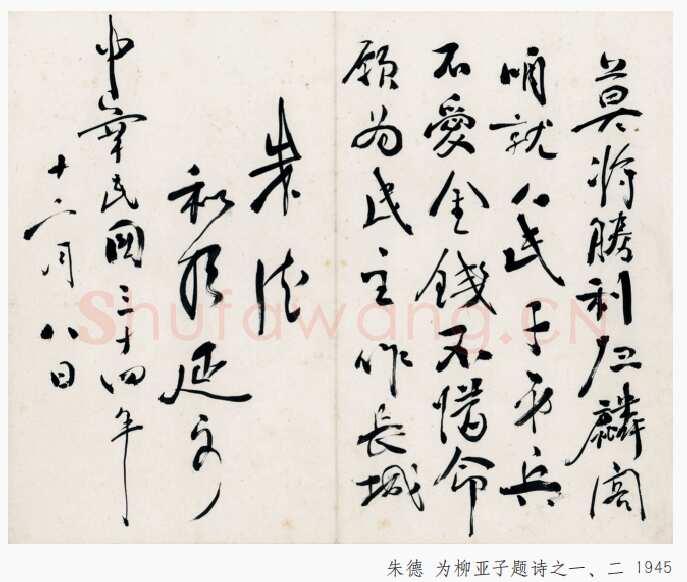 莫将勝利归麟阁
就人民子弟兵
不愛金錢不惜命
願为民主作長城
朱德
和於延安
中華民國三十四年
十二月八日
Shufawang.CN
朱德 为柳亚子题诗之一、二 1945